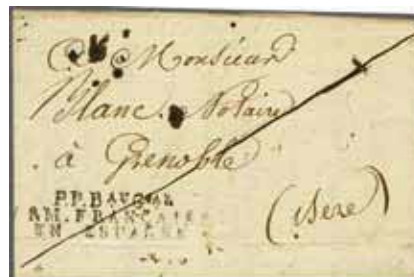 A Monsieur
Blanc Notaire
à Grenoble
(isere)
P.P.BAUCAL
ARM. FRANÇAISE
EN ESPAGNE